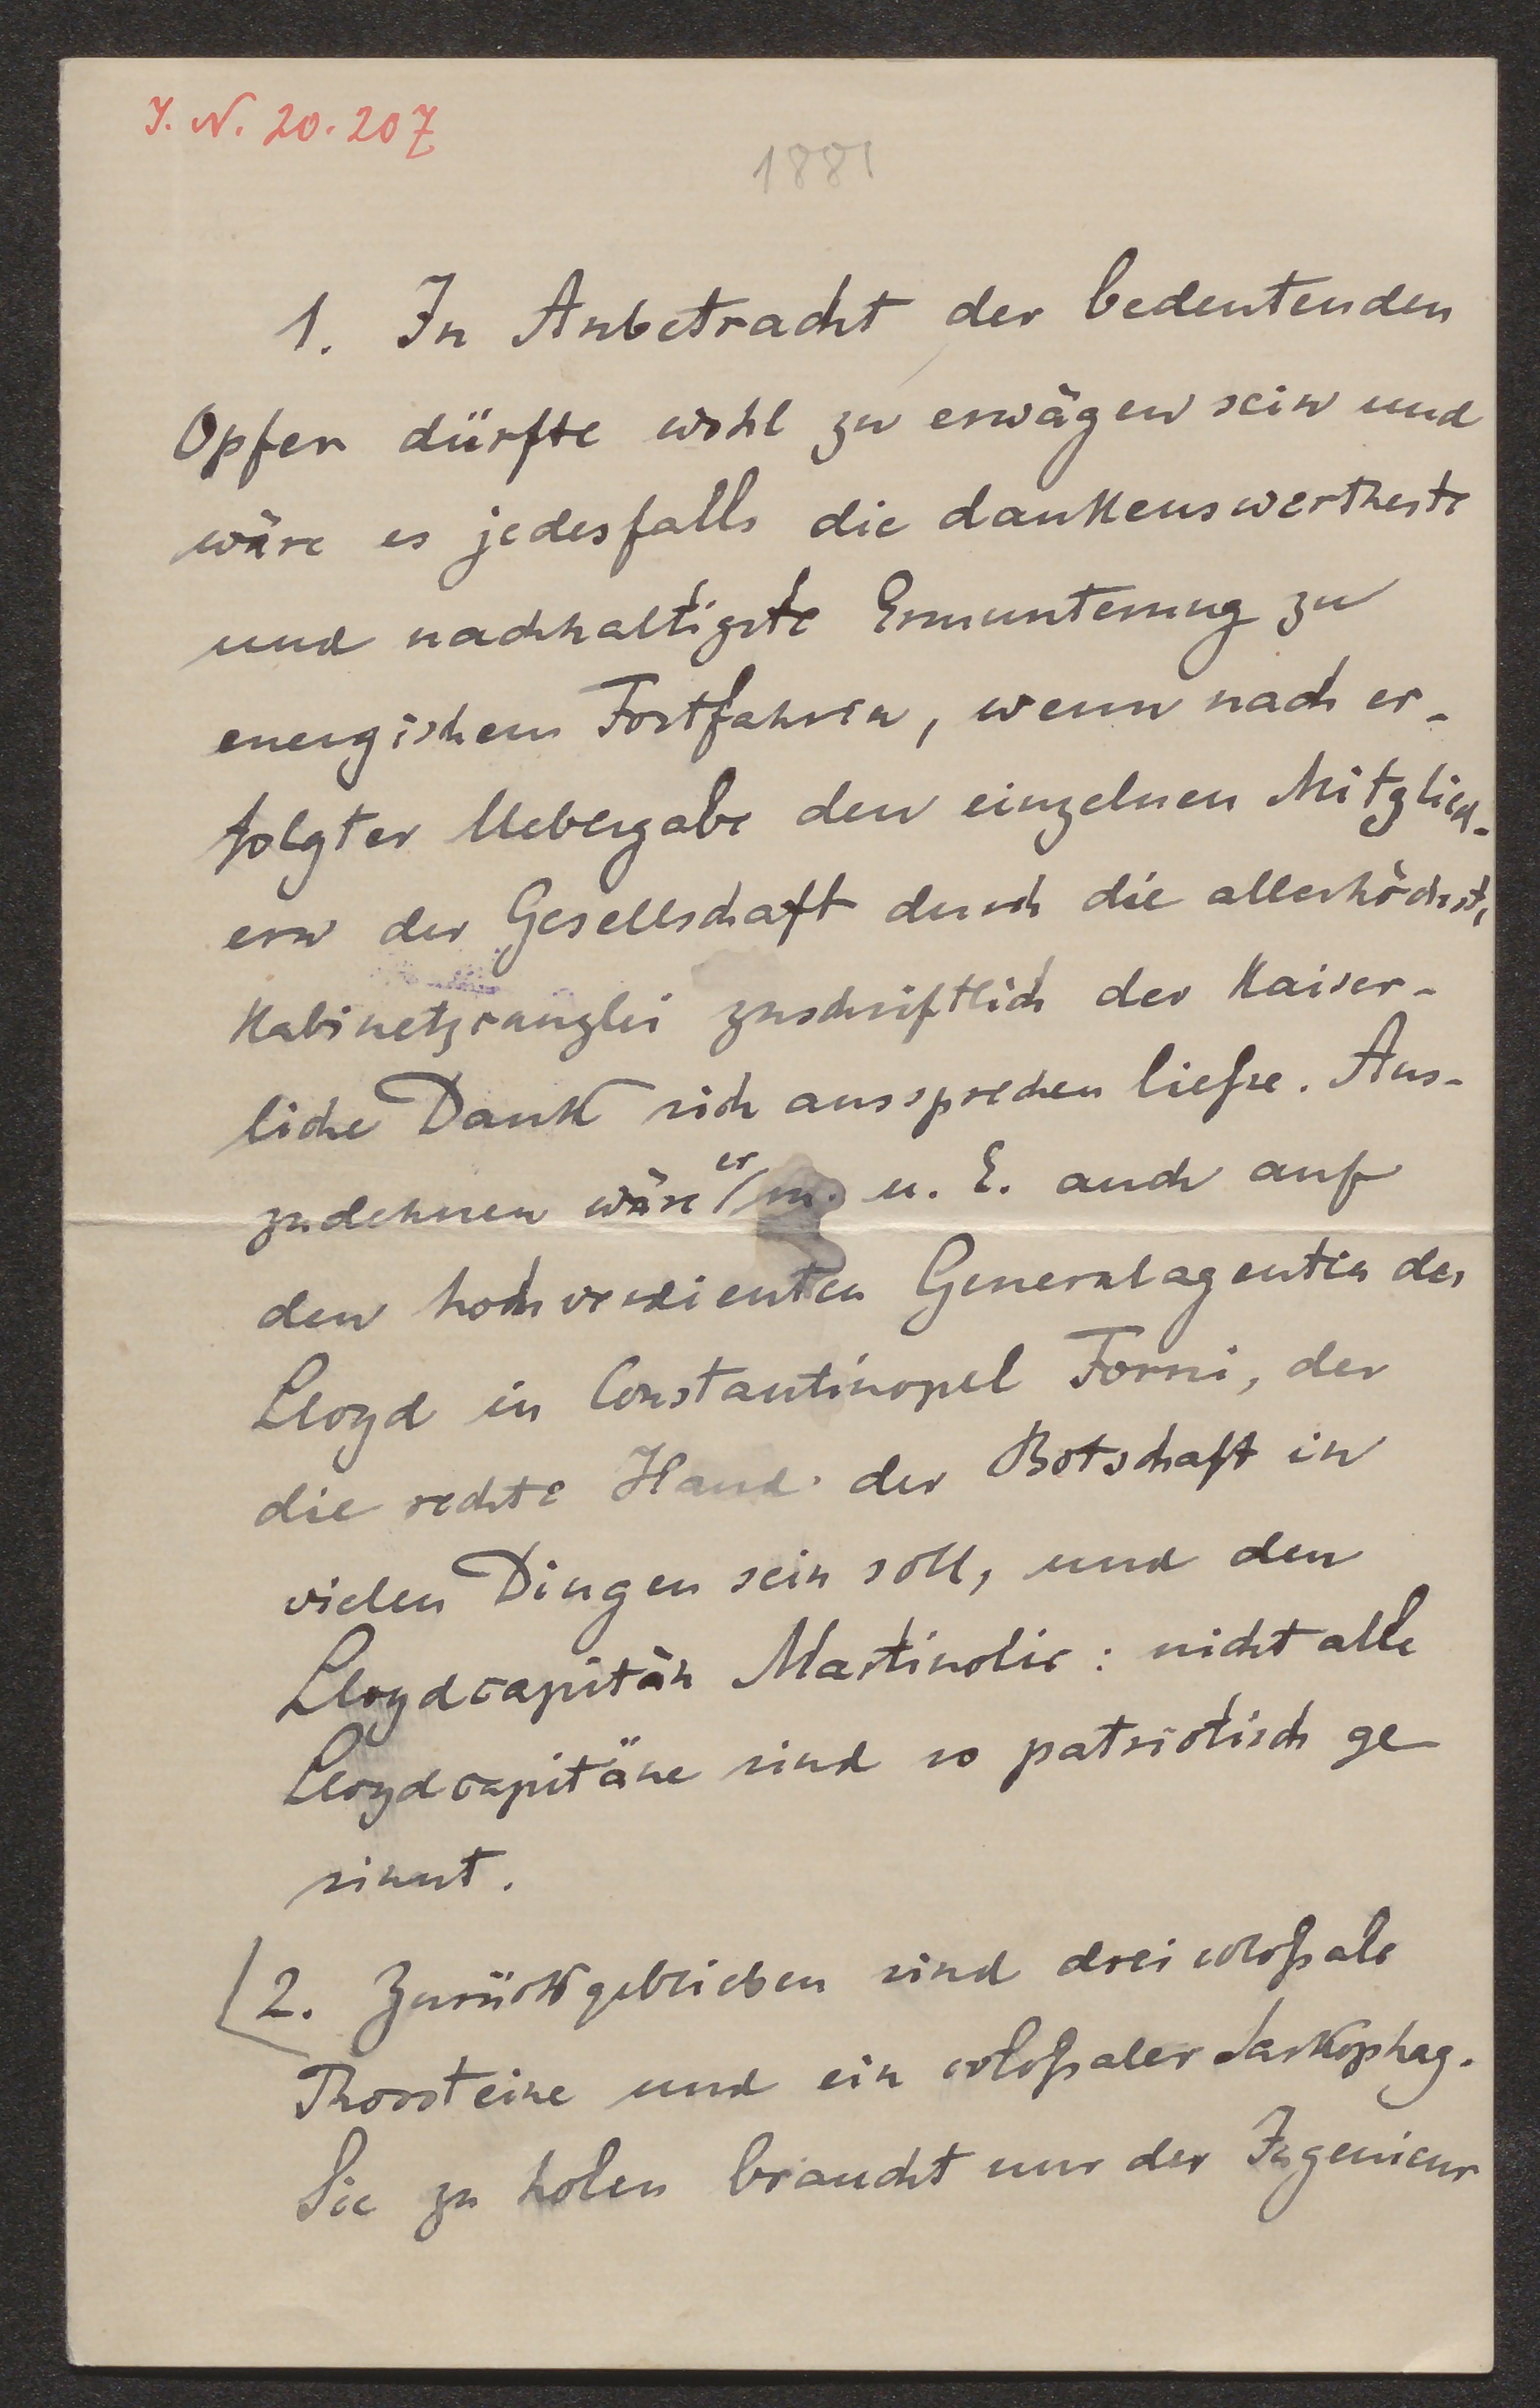 J. N. 20.207
1881
1. In Anbetracht der bedeutenden
Opfer dürfte wohl zu erwägen sein und
wäre es jedesfalls die dankenswertheste
und nachhaltigste Ermunterung zu
energischem Fortfahren, wenn nach er-
folgter Uebergabe den einzelnen Mitglied-
ern der Gesellschaft durch die allerhöchste
Kabinetscanzlei zuschriftlich der Kaiser-
liche Dank sich aussprechen ließe. Aus-
zudehnen wäre er m. u. E. auch auf
den hochverdienten Generalagenten des
Lloyd in Constantinopel Forni, der
die rechte Hand der Botschaft in
vielen Dingen sein soll, und den
Lloydcapitän Martinolic: nicht alle
Lloydcapitäne sind so patriotisch ge
sinnt.
2. Zurückgeblieben sind drei coloßale
Thorsteine und ein coloßaler Sarkophag.
Sie zu holen braucht nur der Ingenieur